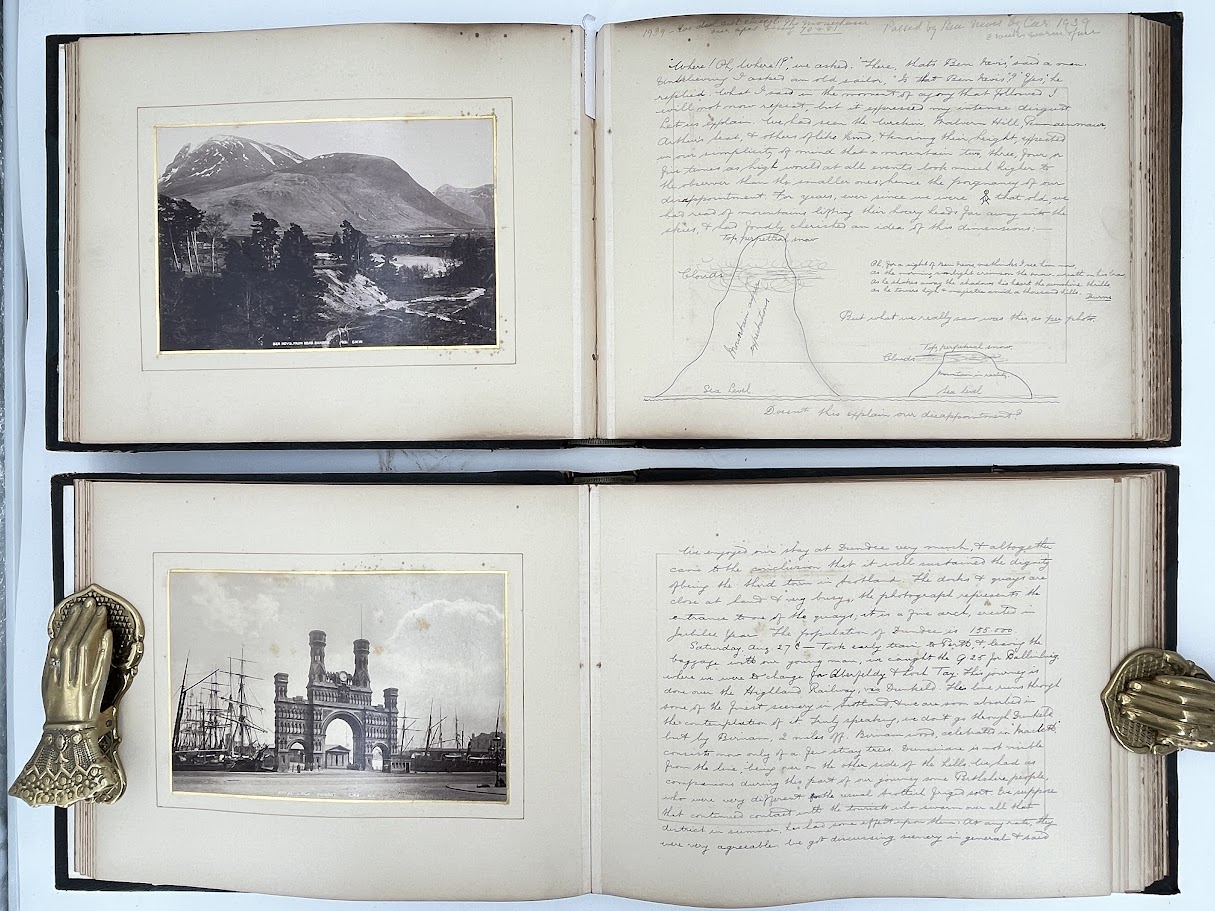 Passed by Ben Nevis by Car 1939
"Where! Oh, Where!?," we asked. "There, that's Ben Nevis," said a man.
Unbelieving I asked an old sailor, "Is that Ben Nevis"? "Yes," he
replied. What I said in the moment of agony that followed I
will not now repeat, but it expressed my intense disgust.
Let us explain. We had seen the Wrekin, Malvern Hill, Penmaenmawr,
Arthur's Seat, & others of like kind, & knowing their height, expected
in our simplicity of mind that a mountain two, three, four, or
five times as high would at all events look much higher to
the observer than the smaller ones, hence the poignancy of our
disappointment. For years, ever since we were that old, we
had read of mountains lifting their hoary heads far away into the
skies, & had fondly cherished an idea of this dimensions:—
Top perpetual snow
Clouds
Mountain of
expectations
Sea Level
Oh for a sight of Ben Nevis, methinks I see him now
as the morning sunlight crimsons the snow wreath on his brow
as he shakes away the shadows his heart the sunshine thrills
as he towers high & majestic amid a thousand hills. Burns
But what we really saw was this as per photo.
Top perpetual snow
Clouds
Mountain in reality
Sea level
Doesn't this explain our disappointment?
BEN NEVIS, FROM NEAR
We enjoyed our stay at Dundee very much, & altogether
came to the conclusion that it well sustained the dignity
of being the third town in Scotland. The docks & quays are
close at hand & very busy, the photograph represents the
entrance to one of the quays, it is a fine arch, erected in
Jubilee Year. The population of Dundee is 155.000
Saturday, Aug. 27th — Took early train to Perth, & leaving the
baggage with our young man, we caught the 9.25 for Ballinluig
where we were to change for Aberfeldy & Loch Tay. This journey is
done over the Highland Railway, via Dunkeld. The line runs though
some of the finest scenery in Scotland & we are soon absorbed in
the contemplation of it. Truly speaking, we don't go through Dunkeld
but by Birnam, 2 miles off. Birnam wood, celebrated in "Macbeth"
consists now only of a few stray trees. Dunsinane is not visible
from the line being over on the other side of the hills. We had as
companions during this part of our journey some Perthshire people,
who were very different to the usual Scottish frigid sort. We suppose
that continued contact with the tourists who swarm over all that
district in summer, has had some effect upon them. At any rate, they
were very agreeable. We got discussing scenery in general & said